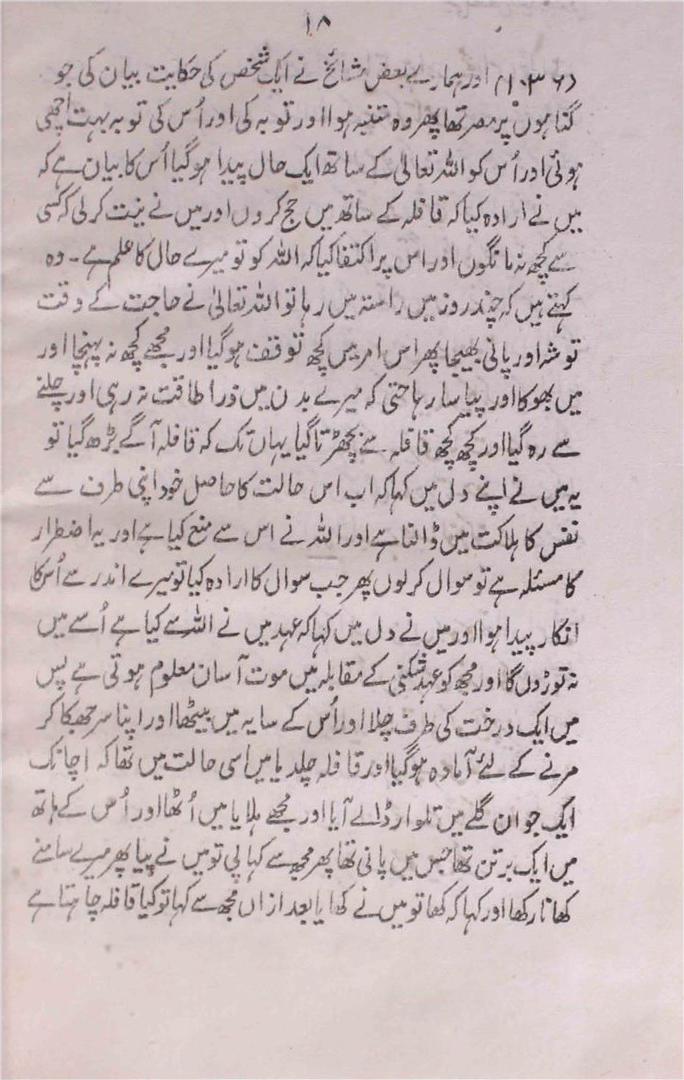 ۱۸
(۱۰۳۶) اور ہمارے بعض مشائخ نے ایک شخص کی حکایت بیان کی جو
گناہوں پر مصر تھا پھر وہ متنبہ ہوا اور توبہ کی اور اُس کی توبہ بہت اچھی
ہوئی اور اُس کو اللہ تعالیٰ کے ساتھ ایک حال پیدا ہو گیا اُس کا بیان ہے کہ
میں نے ارادہ کیا کہ قافلہ کے ساتھ میں حج کروں اور میں نے نیت کر لی کہ کسی
سے کچھ نہ مانگوں اور اس پر اکتفا کیا کہ اللہ کو تو میرے حال کا علم ہے۔ وہ
کہتے ہیں کہ چند روز میں راستہ میں رہا تو اللہ تعالیٰ نے حاجت کے وقت
توشہ اور پانی بھیجا پھر اس امر میں کچھ توقف ہو گیا اور مجھے کچھ نہ پہنچا اور
میں بھوکا اور پیاسا رہا حتی کہ میرے بدن میں ذرا طاقت نہ رہی اور چلنے
سے رہ گیا اور کچھ کچھ قافلہ سے بچھڑتا گیا یہاں تک کہ قافلہ آگے بڑھ گیا تو
یہ میں نے اپنے دل میں کہا کہ اب اس حالت کا حاصل خود اپنی طرف سے
نفس کا ہلاکت میں ڈالنا ہے اور اللہ نے اس سے منع کیا ہے اور یہ اضطرار
کا مسئلہ ہے تو سوال کر لوں پھر جب سوال کا ارادہ کیا تو میرے اندر سے اُس کا
انکار پیدا ہوا اور میں نے دل میں کہا کہ عہد میں نے اللہ سے کیا ہے اُسے میں
نہ توڑوں گا اور مجھ کو عہد شکنی کے مقابلہ میں موت آسان معلوم ہوتی ہے پس
میں ایک درخت کی طرف چلا اور اُس کے سایہ میں بیٹھا اور اپنا سر جھکا کر
مرنے کے لئے آمادہ ہو گیا اور قافلہ چلدیا میں اُسی حالت میں تھا کہ اچانک
ایک جوان گلے میں تلوار ڈالے آیا اور مجھے ہلایا میں اُٹھا اور اُس کے ہاتھ
میں ایک برتن تھا جس میں پانی تھا پھر مجھ سے کہا پی تو میں نے پیا پھر میرے سامنے
کھانا رکھا اور کہا کہ کھا تو میں نے کھایا بعد ازاں مجھ سے کہا تو کیا قافلہ چاہتا ہے